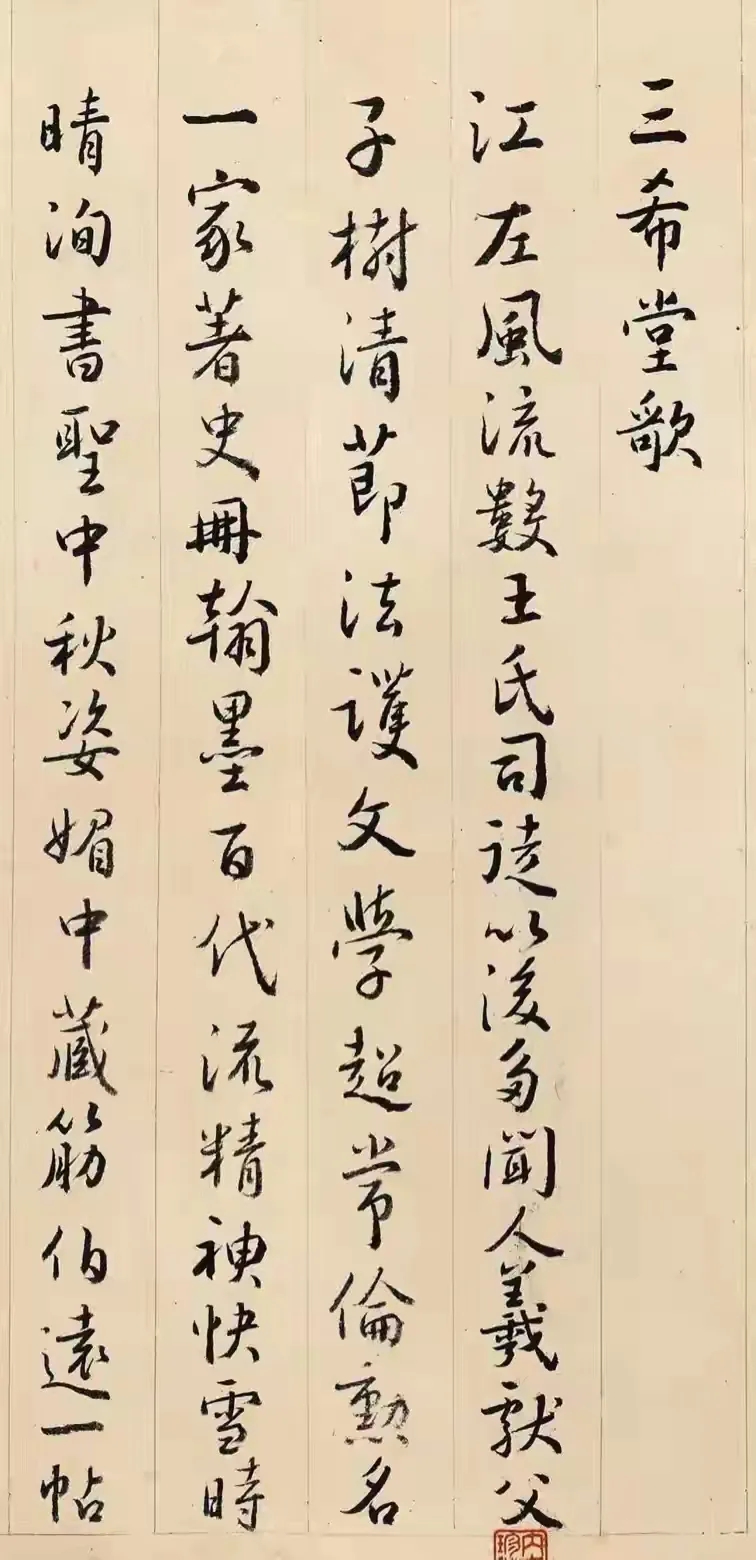 三希堂歌
江左風流數王氏司徒以後多聞人羲獻父
子樹清節法護文學超常倫勲名
一家著史冊翰墨百代流精神快雪時
晴洵書聖中秋姿媚中藏筋伯遠一帖